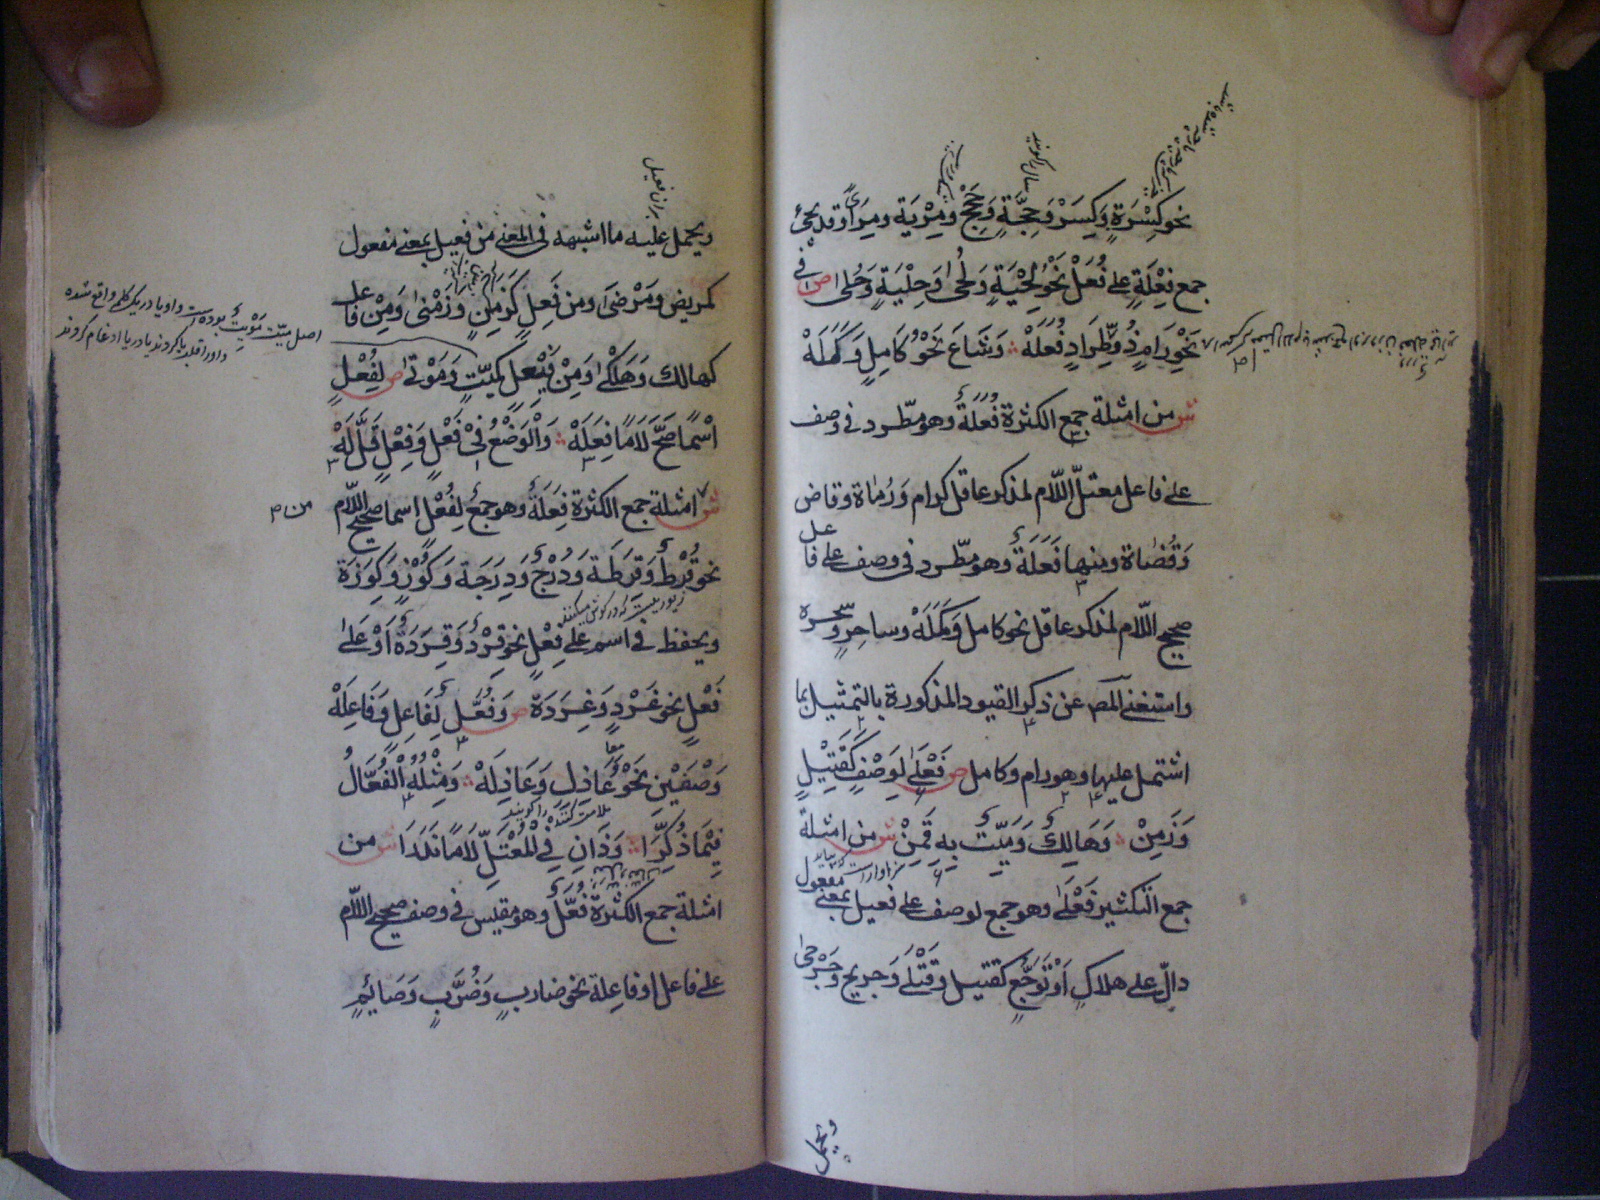 نحو كِسْرَةٍ وَكِسَرْ وَحِجَّةٍ وَحِجَجْ ومِرْيَة ومِرَاً وقد يجئ
جمع فِعْلَةٍ على فُعَلْ نَحْوُ لِحْيَةٍ وَلُحىٰ وَحِلْيَةٍ وَحُلى ص في
نَحْوِ رَامٍ ذُو طِّرَادٍ فُعَلَهْ وَشَاعَ نَحْوُ كَامِلٍ وَكَمَلَهْ
ش من امثلة جمع الكثرة فُعَلَةٌ وهو مطّرد في وصف
على فاعل معتلّ اللّام لمذكر عاقل كرام وَرُمٰاة وقاض
وَقُضٰاة ومنها فَعَلَةٌ وهو مطّرد فى وصف على فاعل
صحيح اللّام لمذكر عاقل نحو كامل وَكَمَلَهْ وساحِرٍ وسَحَرة
واستغنى المص عن ذكر القيود المذكورة بالتمثيل بما
اشتمل عليها وهو رام وكامل ص فَعْلَىٰ لِوَصْفٍ كَقَتِيْلٍ
وَزَمِنْ وَهَالِكٌ وَمَيِّتٌ بِهِ قَمِنْ ش من امثلة
جمع التكثير فَعْلَىٰ وهو جمع لوصف على فعيل بمعنى مفعول
دالّ على هلاكٍ اَوْ تَوَجُّعٍ كقتيل وَقَتْلَىٰ وَجريح وَجَرْحىٰ
ويحمل
ويحمل عليه ما اشبهه فى المعنى من فعيل بمعنى مفعول
كمريض ومَرْضىٰ ومن فَعِلٍ كَزَمِنٍ وَزَمْنىٰ وَمِنْ فاعل
كهالك وَهَلْكىٰ وَمِنْ فَيْعِلٍ كميّتٍ وَمَوْتىٰ ص لِفُعْلٍ
اسْمًا صَحَّ لَامًا فِعَلَهْ وَالْوَضْعُ فِىْ فَعْلٍ وَفِعْلٍ قَلَّلَهْ
ش امثلة جمع الكثرة فِعَلَةٌ وهو جمعٌ لِفُعْلٍ اسما صحيح اللّام
من م
نحو قُرْطٍ وَقِرَطَة وَدُرْجٍ وَدِرَجَة وَكُوْزٍ وَكِوَزَة
زيوريست كه در گوش ميكنند
ويحفظ فى اسم على فِعْلٍ نحو قِرْدٍ وَقِرَدَةٌ اَوْ عَلىٰ
فَعْلٍ نحو غَرْدٍ وَغِرَدَة ص وَفُعَّلٌ لِفَاعِلٍ وَفَاعِلَهْ
وَصْفَيْنِ نَحْوُ عَاذِلٍ وَعَاذِلَهْ وَمِثْلُهُ الْفُعَّالُ
ملامت كننده را گويند
فِيْمَا ذُكِّرَا وَذَانِ فِى الْمُعْتَلِّ لَامًا نَدَرَا ش من
امثلة جمع الكثرة فُعَّلٌ وهو مقيس فى وصف صحيح اللّام
على فاعل او فاعِلة نحو ضاربٍ وَضُرَّبٍ وَصَائِمٍ
اصل ميّت مَوْيِت بوده است واو يا در يك كلمه واقع شده
واو را قلب بيا كردند يا در يا ادغام كردند
بر وزن فعيل